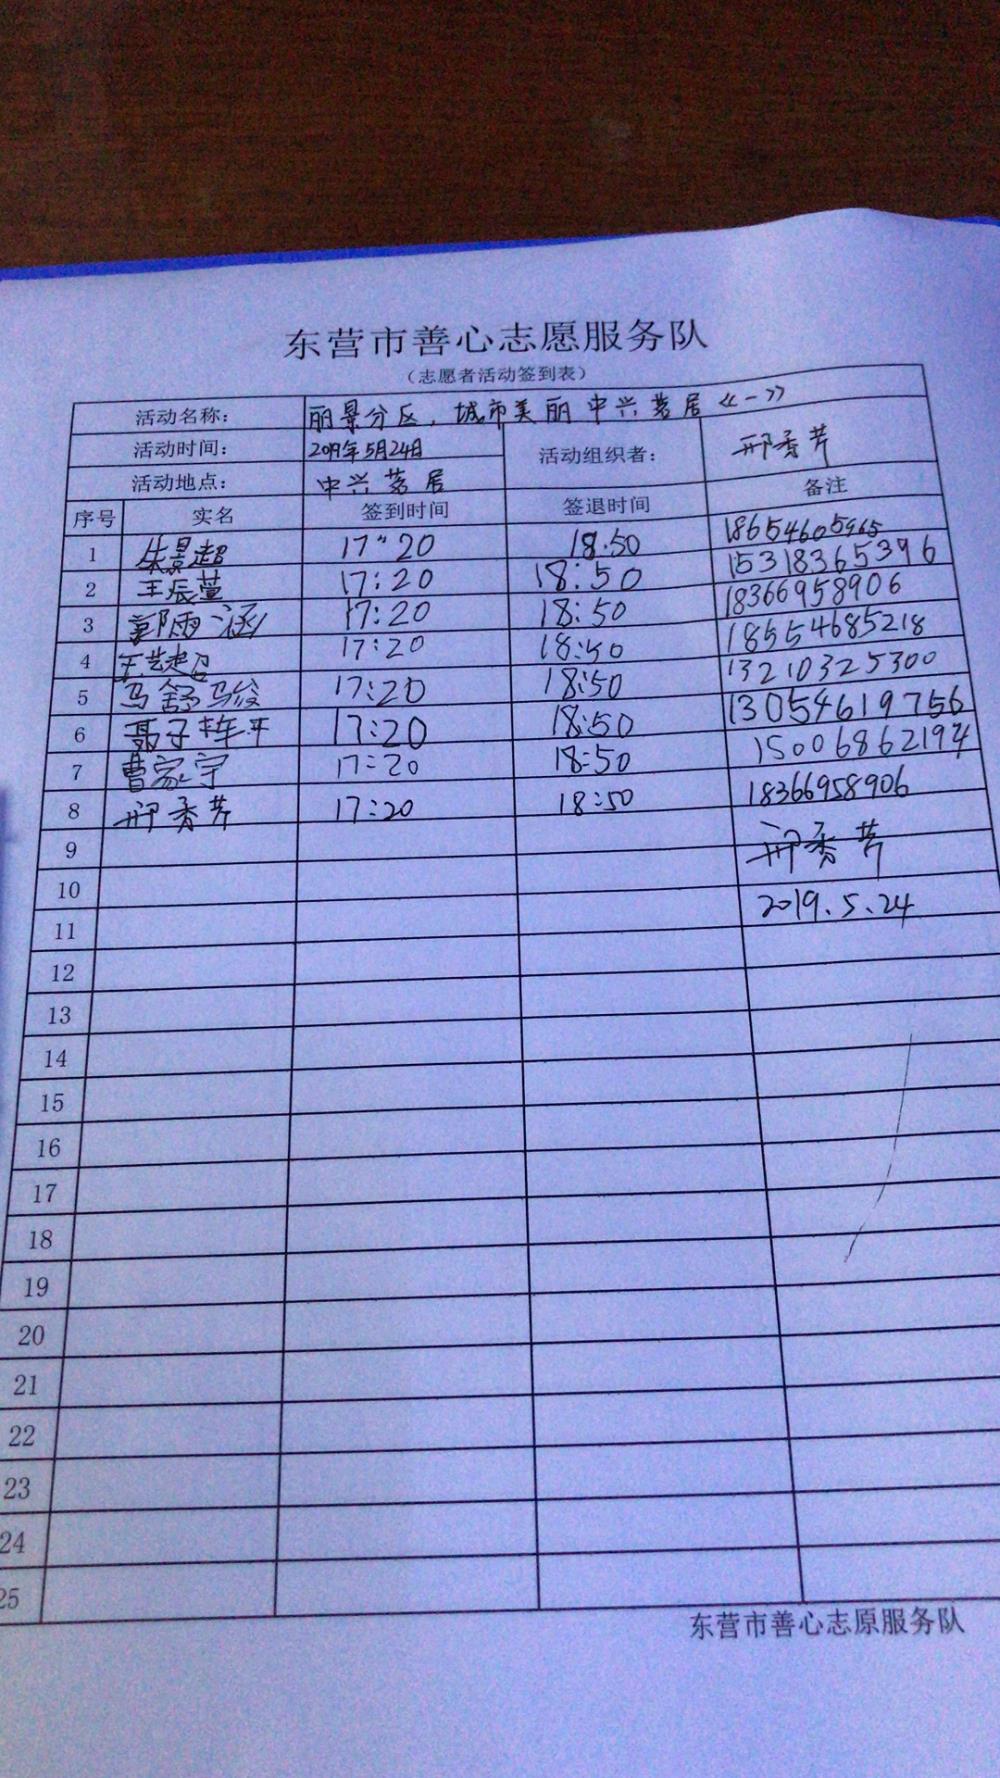 东营市善心志愿服务队
（志愿者活动签到表）
活动名称： 丽景分区，城市美丽中兴茗居《一》
活动时间： 2019年5月24日 活动组织者： 邢秀芹
活动地点： 中兴茗居
序号 实名 签到时间 签退时间 备注
1 朱景超 17"20 18:50 18654605965
2 王辰萱 17:20 18:50 15318365396
3 郭雨涵 17:20 18:50 18366958906
4 17:20 18:50 18554685218
5 马舒骏 17:20 18:50 13210325300
6 聂子 17:20 18:50 13054619756
7 曹家宁 17:20 18:50 15006862194
8 邢秀芹 17:20 18:50 18366958906
9 邢秀芹
10
11 2019.5.24
12
13
14
15
16
17
18
19
20
21
22
23
24
25
东营市善心志原服务队